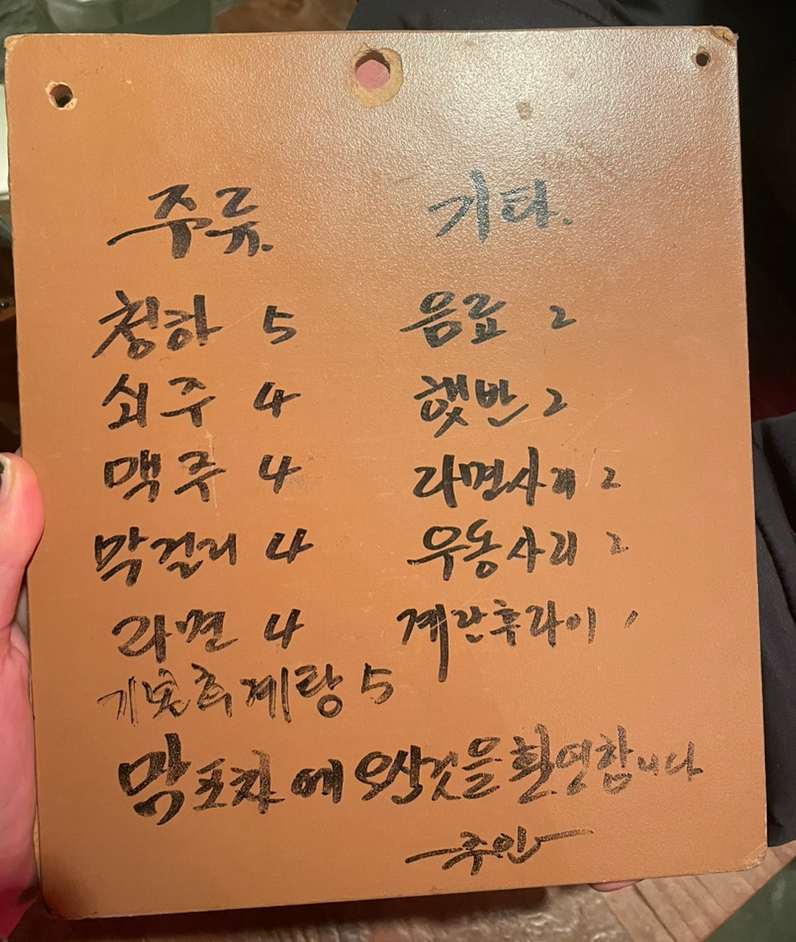 주류.
청하 5
쇠주 4
맥주 4
막걸리 4
라면 4
5
기타.
음료 2
햇반 2
라면사리 2
우동사리 2
계란후라이 1
막포차에 오신것을 환영합니다
-주인-